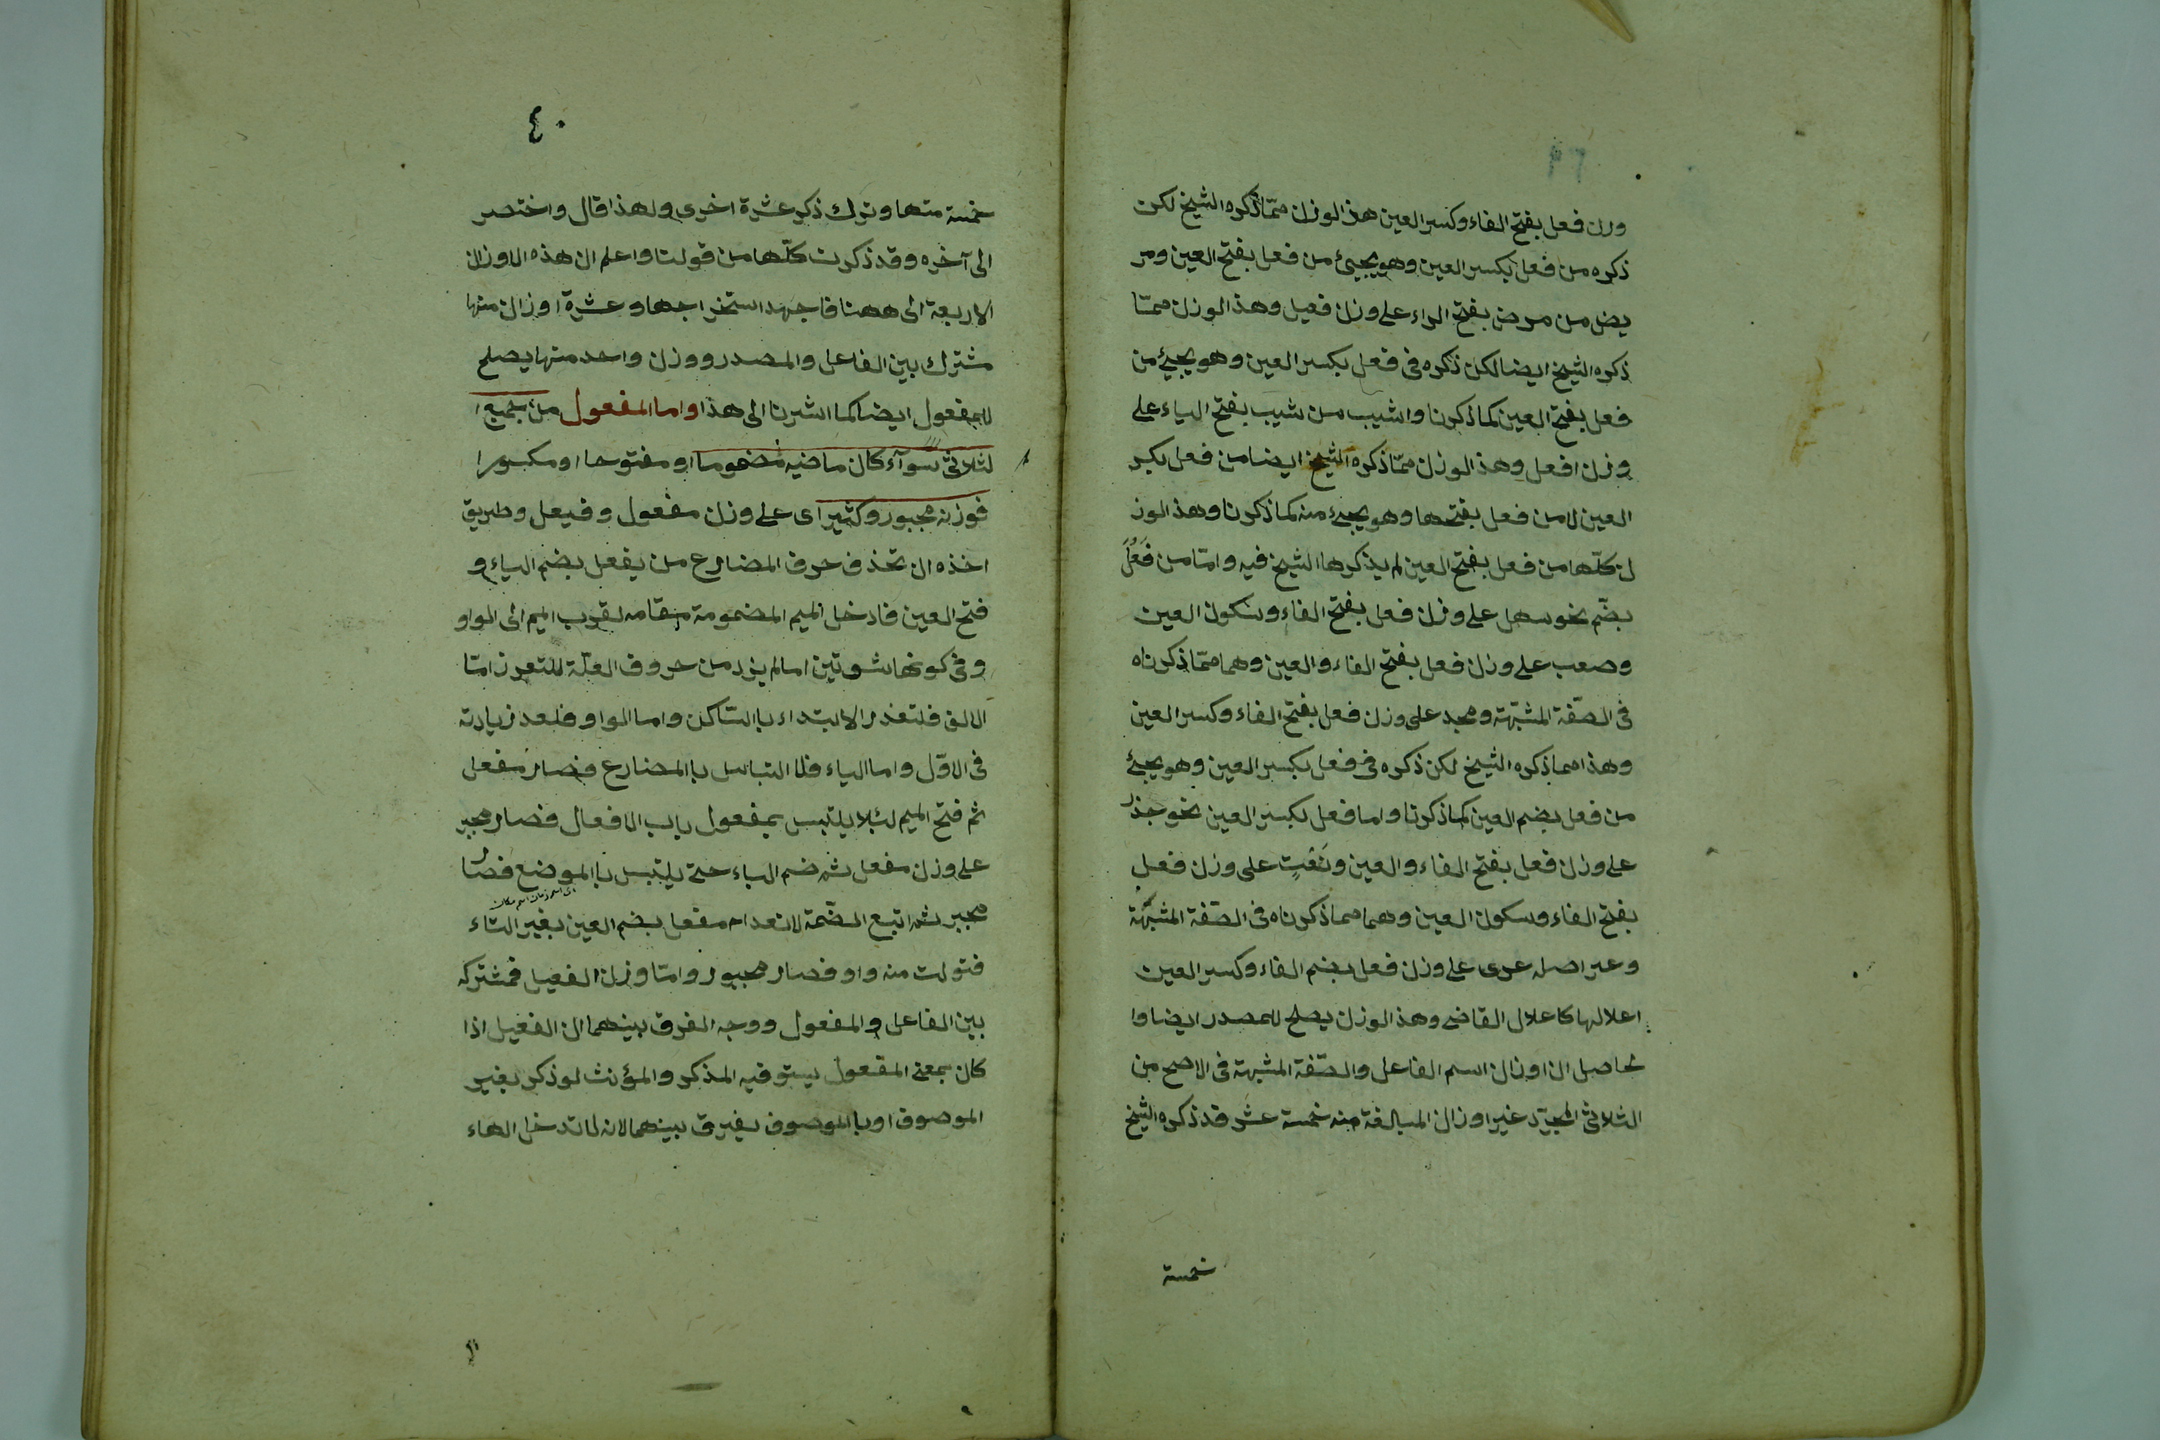 وزن فعل بفتح الفاء وكسر العين هذ الوزن ممّا ذكره الشيخ لكن
ذكره من فعل بكسر العين وهو يجيئ من فعل بفتح العين ومر
يض من مرض بفتح الراء على وزن فعيل وهذ الوزن ممّا
ذكره الشيخ ايضا لكن ذكره فى فعل بكسر العين وهو يجيئ من
فعل بفتح العين كما ذكرنا واشيب من شيب بفتح الياء على
وزن افعل وهذ الوزن ممّا ذكره الشيخ ايضا من فعل بكسر
العين لا من فعل بفتحها وهو يجيئ منه كما ذكرنا وهذ الوز
ن كلّها من فعل بفتح العين لم يذكرها الشيخ فيه وامّا من فَعُلَ
بضّم نحو سهل على وزن فعل بفتح الفاء وسكون العين
وصعب على وزن فعل بفتح الفاء والعين وهما ممّا ذكرناه
فى الصّفة المشبّهة ومجد على وزن فعل بفتح الفاء وكسر العين
وهذا مما ذكره الشيخ لكن ذكره فى فعل بكسر العين وهو يجيئ
من فعل بضم العين كما ذكرنا واما فعل بكسر العين نحو جذر
على وزن فعل بفتح الفاء والعين و على وزن فعل
بفتح الفاء وسكون العين وهما مما ذكرناه فى الصّفة المشبّهة
وعر اصله عرى على وزن فعل بضم الفاء وكسر العين
اعلالها كاعلال القاضى وهذ الوزن يصلح للمصدر ايضا وا
لحاصل ان اوزان اسم الفاعل والصّفة المشبهة فى الاصح من
الثلاثى المجرّد غير اوزان المبالغة منه خمسة عشر قد ذكره الشيخ
خمسة
٤٠
خمسة منها وترك ذكر عشرة اخرى ولهذا قال واختصر
الى آخره وقد ذكرت كلّها من قولنا واعلم ان هذه الاوزان
الاربعة الى ههنا فاجهد استخراجها وعشرة اوزان منها
مشترك بين الفاعل والمصدر ووزن واحد منها يصلح
للمفعول ايضا كما اشرنا الى هذا واما المفعول من جميع ا
لثلاثى سوآء كان ماضيه مضموما او مفتوحا او مكسورا
فوزنه مجبور وكثير اى على وزن مفعول وفيعل وطريق
اخذه ان تحذف حرف المضارع من يفعل بضم الياء و
فتح العين فادخل الميم المضمومة مقامه لقرب الميم الى الواو
وفى كونها شويتين امالم يزد من حروف العلّة للتعرز امّا
الالف فلتعذر الابتداء باالسّاكن واما الواو فلعد زيادته
فى الاوّل واما الياء فلا التباس بالمضارع فصار مفعل
ثم فتح الميم لئلا يلتبس بمفعول باب الافعال فصار مجبر
على وزن مفعل ثم ضم الباء حتى يلتبس باالموضع فصار
اى اسم زمان اسم مكان
مجبر ثم اتبع الضّمة لانعدام مفعل بضم العين بغير التاء
فتولت منه واو فصار مجبور وامّا وزن الفعيل فمشتركه
بين الفاعل والمفعول ووجه الفرق بينهما ان الفعيل اذا
كان بمعنى المفعول يستو فيه المذكر والمؤنث لو ذكر بغير
الموصوف او باالموصوف يفرق بينهما لانه لما تدخل الهاء